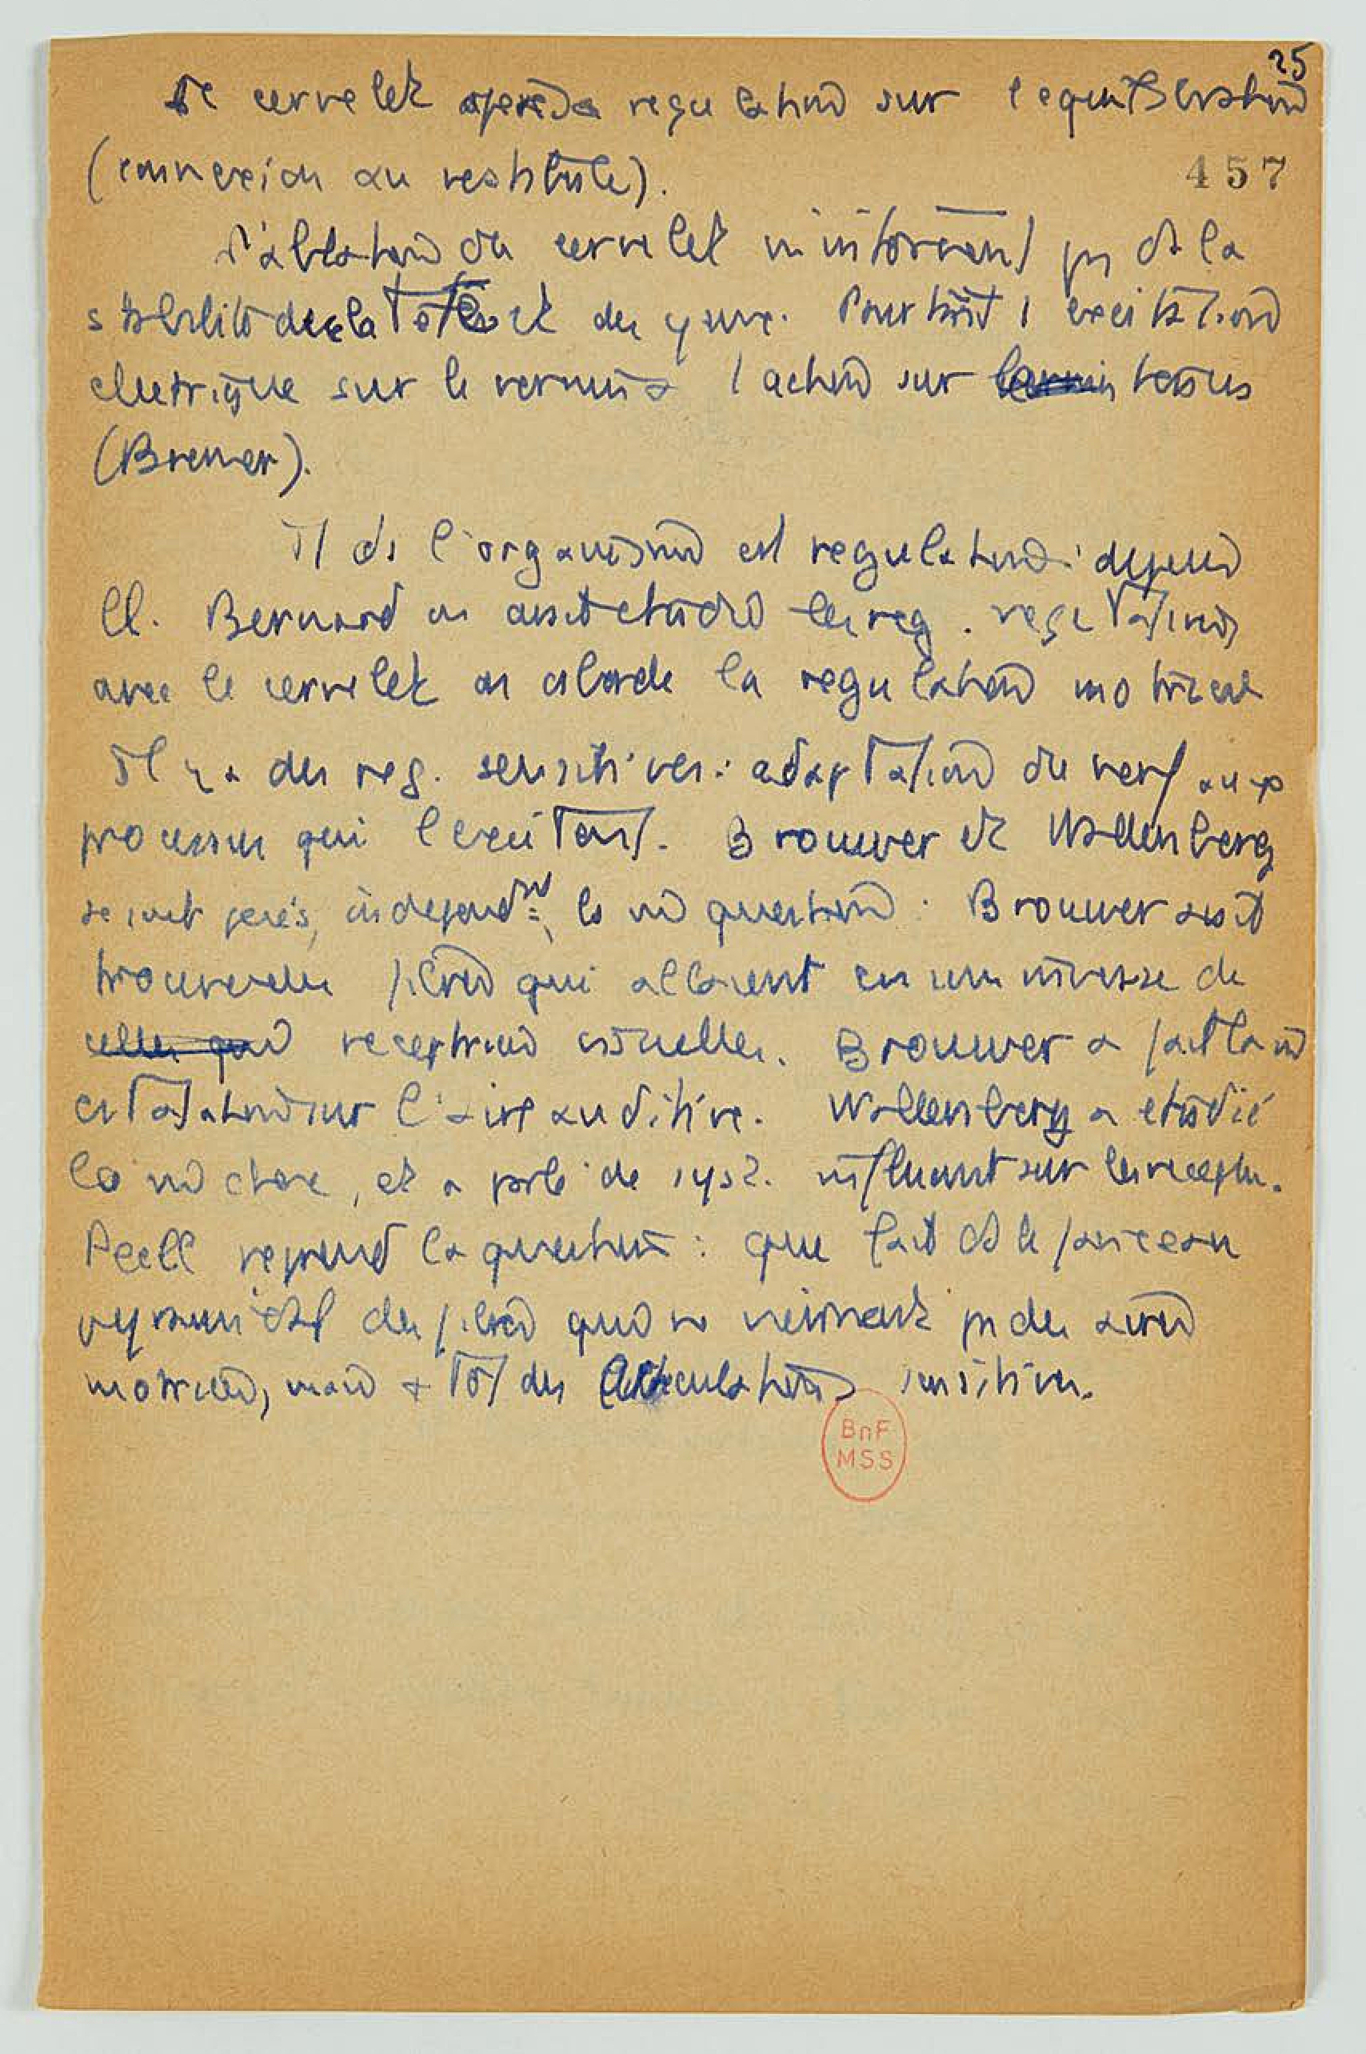 25
Le cervelet opère sa regulation sur l equilibration
(connexion au vestibule).
457
L'ablation du cervelet n intervient ps ds la
stabilité de la tête et des yeux. Pourtant l excitation
electrique sur le vermis a l action sur
(Bremer).
Tt ds l'organisme est regulation: depuis
Cl. Bernard on avait etudié les reg. vegetatives
avec le cervelet on aborde la regulation motrice
Il y a des reg. sensitives: adaptation du nerf aux
processus qui l excitent. Brouwer et Wallenberg
se sont posés, independnt, la m question. Brouwer avait
trouver des fibres qui allaient en sens inverse de
celles receptions visuelles. Brouwer a fait la m
constatation sur l'aire auditive. Wallenberg a etudié
la m chose, et a parlé de syst. influant sur les recept.
reprend la question: que fait ds le faisceau
pyramidal des fibres qui ne viennent ps des aires
motrices, mais + tôt des articulations sensitives.
BnF
MSS